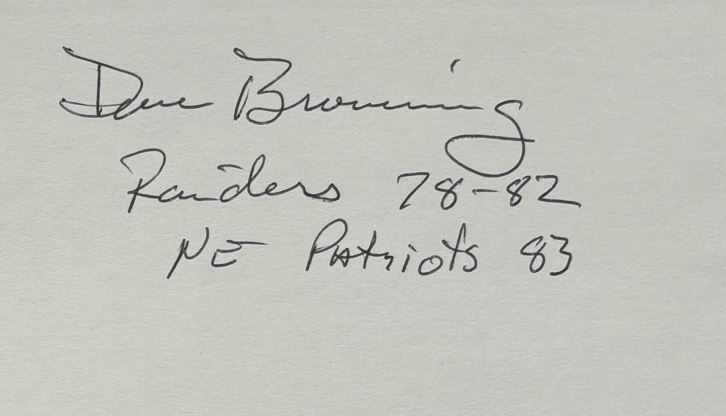 Dave Browning
Raiders 78-82
NE Patriots 83